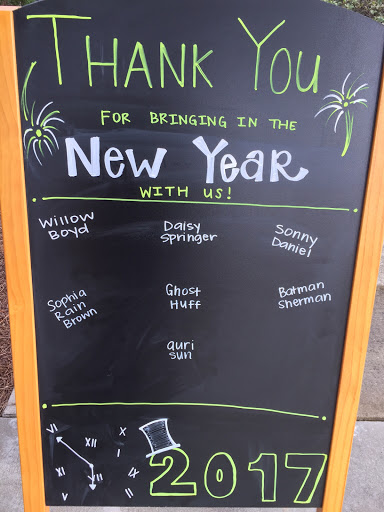 THANK YOU
FOR BRINGING IN THE
NEW YEAR
WITH US!
Willow
Boyd
Daisy
Springer
Sonny
Daniel
Sophia
Rain
Brown
Ghost
Huff
Batman
Sherman
auri
sun
VI
XII
X
I
XI
VI
III
V
XII
2017